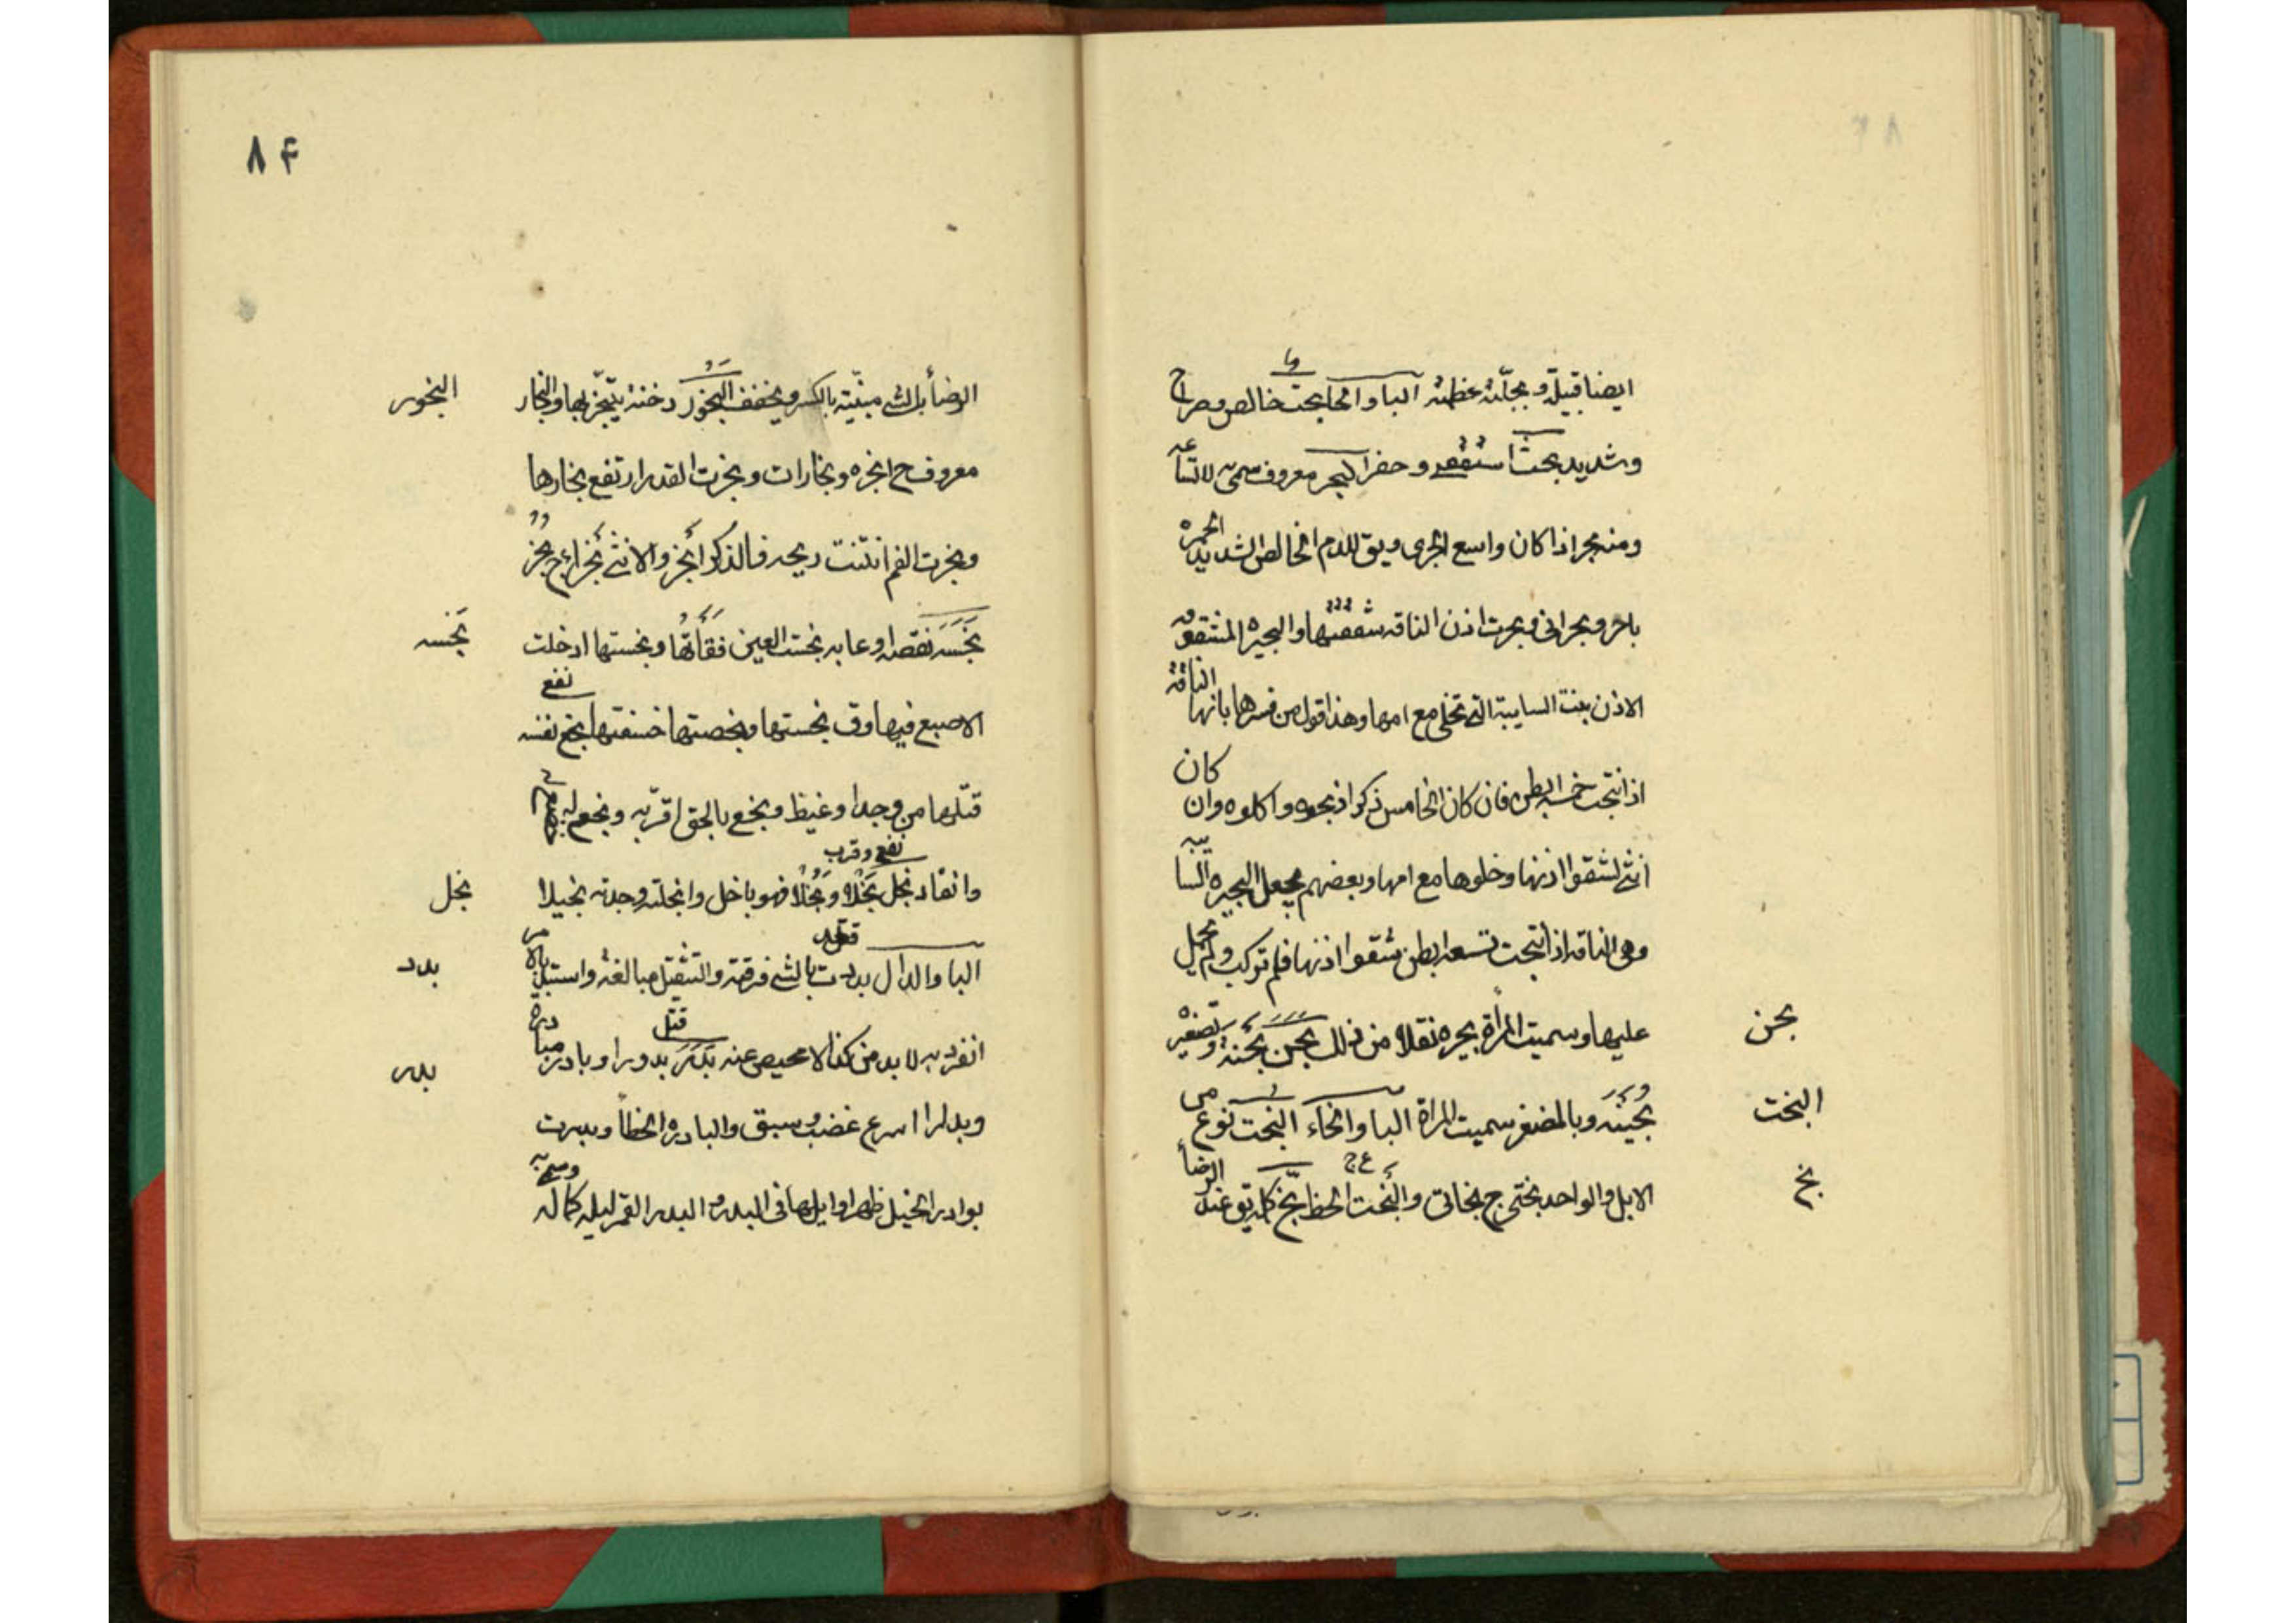 ايضا قبيلة وبجلته عظمته البا والحا بحت خالص وصراح
وشديد بحثا استقصى وحفر البحر معروف سمى لاتساعه
ومنه بحر اذا كان واسع الجرى ويق للدم الخالص الشديد الحمره
باحر وبحرانى وبحرت اذن الناقه شققتها والبحيرة المشقوقه
الاذن بنت السايبة التى تخلى مع امها وهذا قول من فسرها بانها الناقة
اذا نتجت خمسه ابطن فان كان الخامس ذكرا ذبحوه واكلوه وان كان
انثى شقوا اذنها وخلوها مع امها وبعضهم يجعل البحيره السايبه
وهى الناقه اذا نتجت تسعه ابطن شقوا اذنها فلم تركب ولم يحمل
بحن
عليها وسميت المرأة بحيره نقلا من ذلك بحن بحنة وتصغيره
البخت
بحينه وبالمصغر سميت المراة البا والخاء البخت نوع من
بخ
الابل والواحد بختى ج بخاتى والبخت الحظ بخ كلمة يق عند الرضأ
٨۴
البخور
الرضأ بالشى مبنية بالكسر ويخفف البخور دخنة يتبخر بها والبخار
معروف ج ابخره وبخارات وبخرت القدر ارتفع بخارها
وبخرت الفم انتنت ريحه فالذكر ابخر والانثى بخراء ج بخر
بخسه
بخسه نقصه او عابه بخست العين فقأتها وبخستها ادخلت
الاصبع فيها وق بخستها وبخصتها خسفتها بخع نفسه نفع
قتلها من وجد او غيظ وبخع بالحق اقر به وبخع له
بخل
وانقاد بخل بخلا وبخلا فهو باخل وابخلته وجدته بخيلا نفع وقرب
بدد
البا والدال بددت الشى فرقته والتثقيل مبالغة واستبد بالامر قتله
بدر
انفرد به لا بد من كذا لا محيص عنه بدر بدورا وبادر مبادرة قتل
وبدارا اسرع غضب وسبق والبادره الخطأ وبدرت
بوادر الخيل ظهر اوايلها فى البدره البدر القمر ليله كماله وسمى به